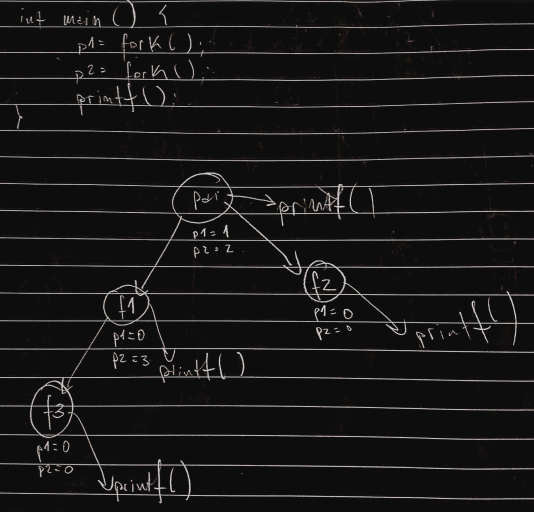 int main () {
p1 = fork();
p2 = fork();
printf();
}
pai
printf()
p1 = 1
p2 = 2
f1
f2
p1 = 0
p2 = 0
printf()
p1 = 0
p2 = 3
printf()
f3
p1 = 0
p2 = 0
printf()